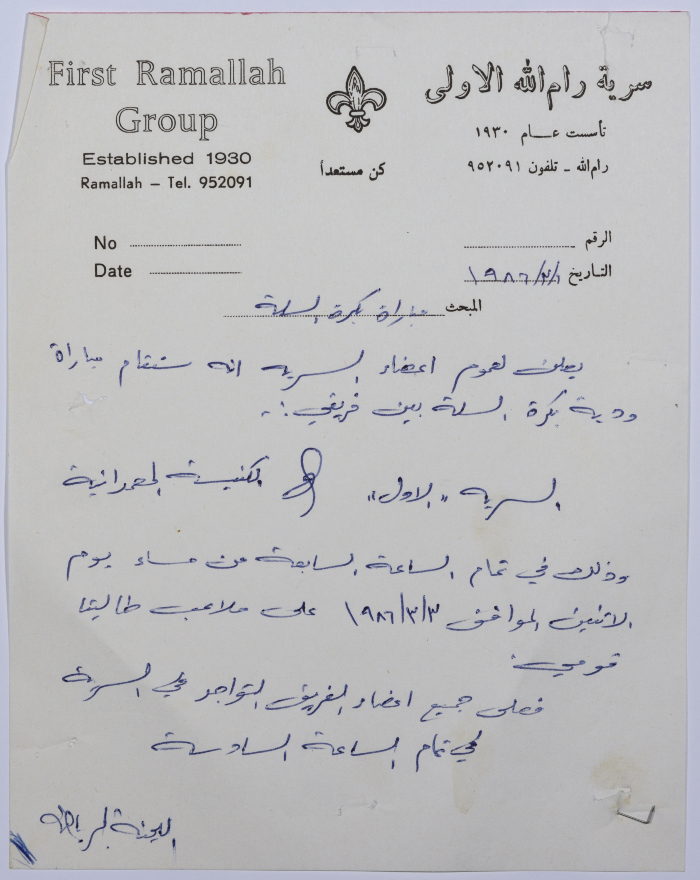 First Ramallah
Group
Established 1930
Ramallah – Tel. 952091
سرية رام الله الاولى
تأسست عـــام ١٩٣٠
رام الله ـ تلفون ٩٥٢٠٩١
كن مستعداً
No
Date
الرقم
التـاريخ ١٩٨٦/٣/١
المبحث مباراة بكرة السلة
يعلن لعموم اعضاء السريه انه ستقام مباراة
ودية بكرة السلة بين فريقي :-
السريه "الاول" & الكنيسة المعمدانية
وذلك في تمام الساعة السابعة من مساء يوم
الاثنين الموافق ١٩٨٦/٣/٣ على ملاعب طاليتا
قومي.
فعلى جميع اعضاء الفريق التواجد في السرية
في تمام الساعة السادسة
اللجنة الرياضية